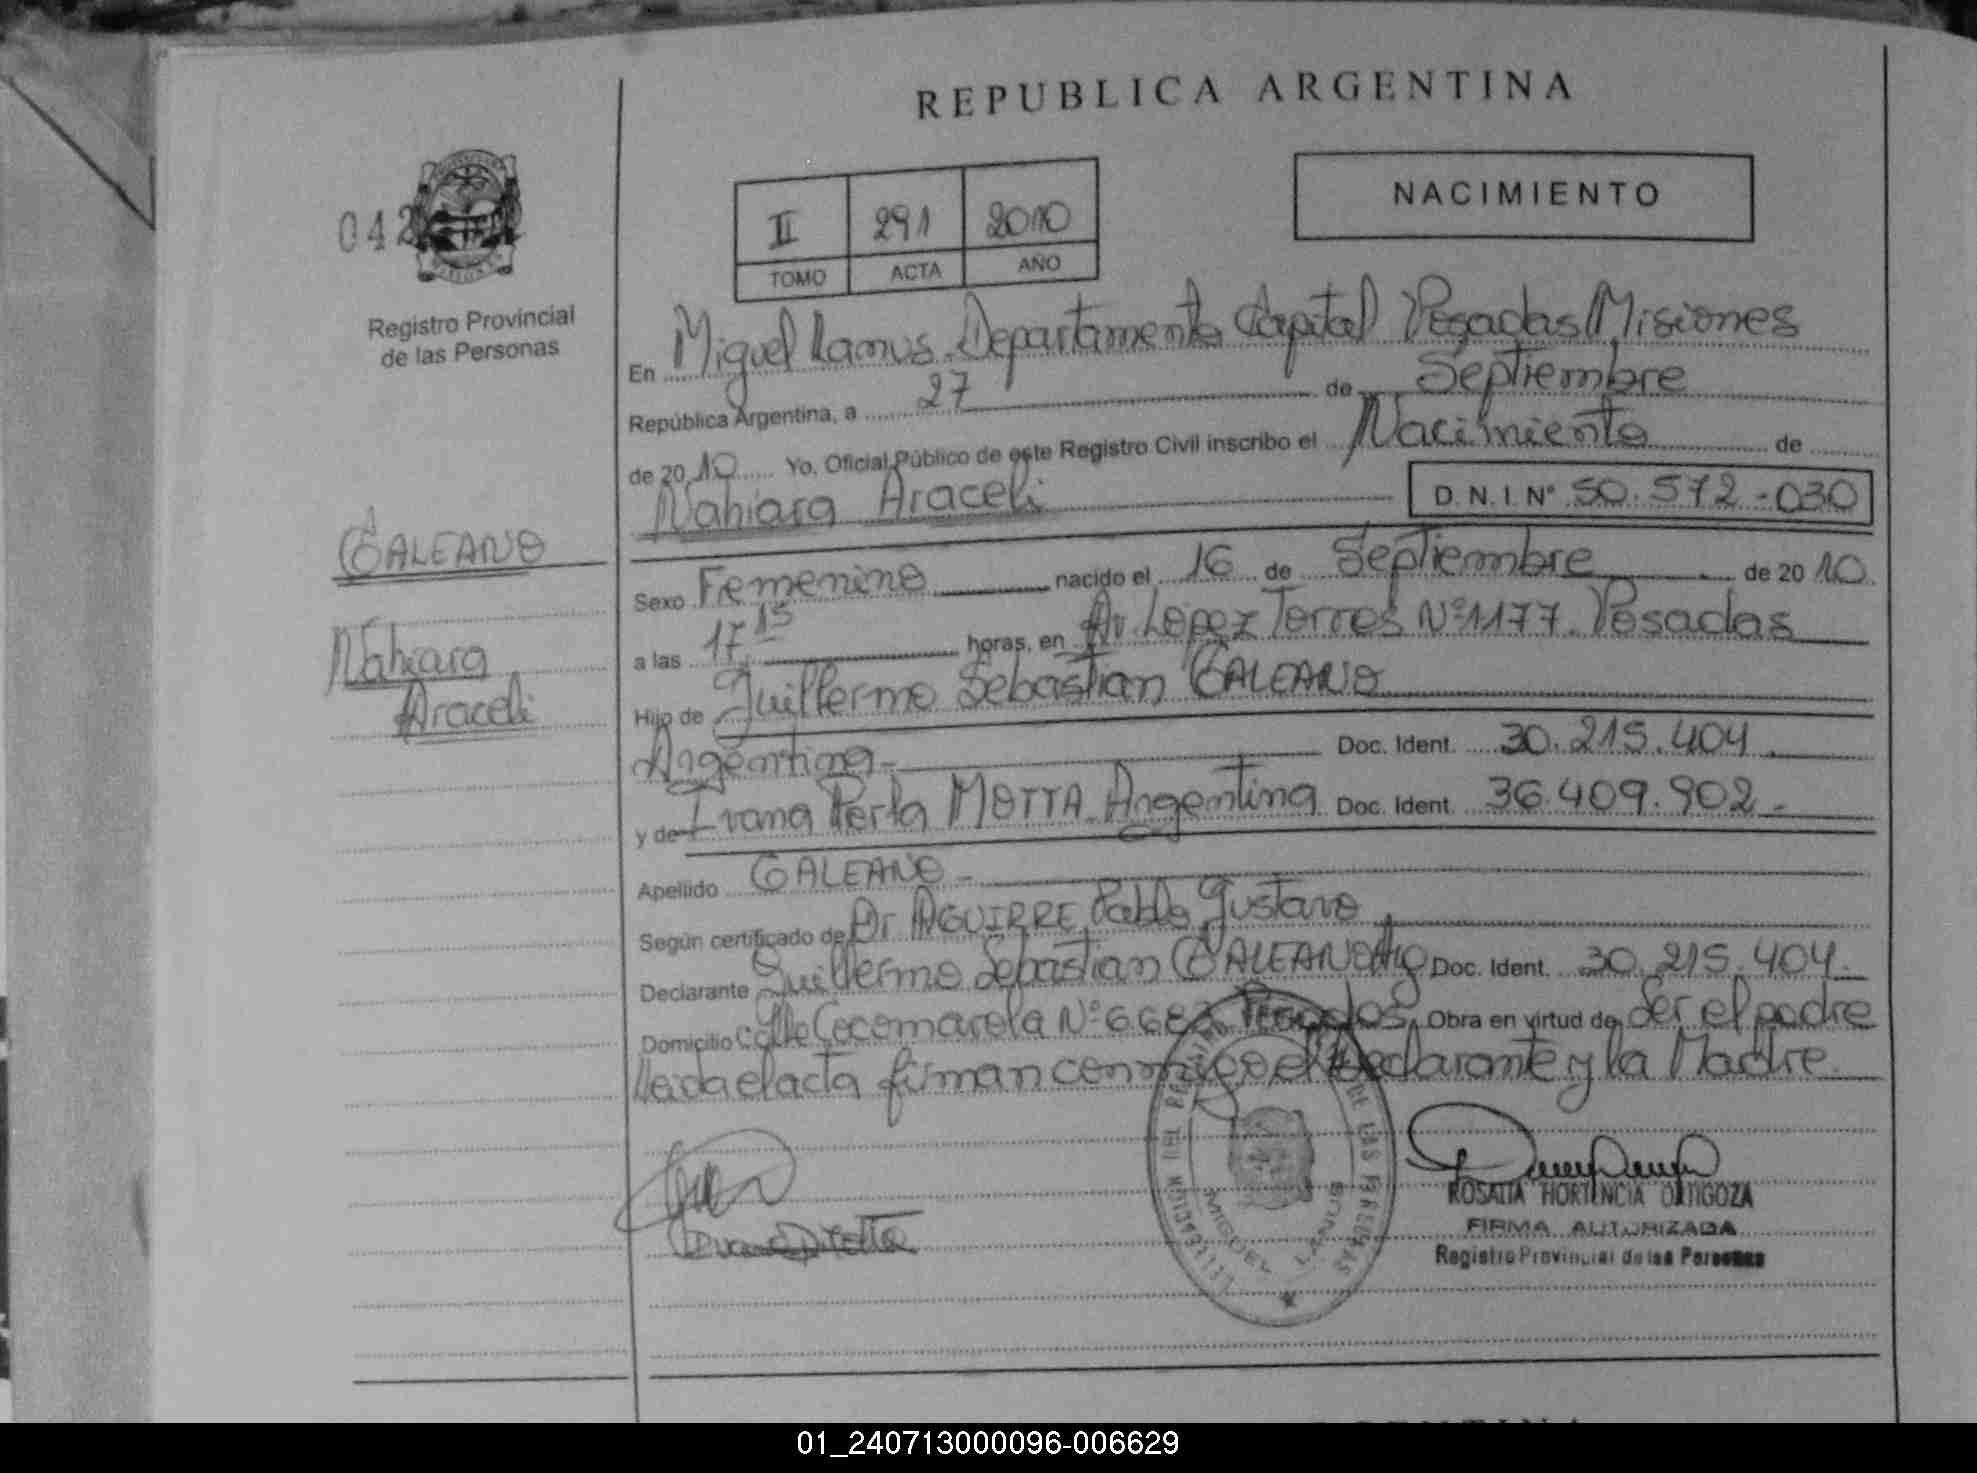 REPUBLICA ARGENTINA
NACIMIENTO
042
II 291 2010
TOMO ACTA AÑO
Registro Provincial
de las Personas
En Miguel Lanus. Departamento Capital Posadas Misiones
República Argentina, a 27 de Septiembre
de 2010 Yo, Oficial Público de este Registro Civil inscribo el Nacimiento de
Nahiara Araceli D.N.I. N° 50.572-030
GALEANO
Nahiara
Araceli
Sexo Femenino nacido el 16 de Septiembre de 2010
a las 17 15 horas, en Av. López Torres Nº 1177. Posadas
Hijo de Guillermo Sebastian GALEANO
Argentina- Doc. Ident. 30.215.404.
y de Ivana Perla MOTTA Argentina Doc. Ident. 36.409.902.-
Apellido GALEANO-
Según certificado de Dr AGUIRRE, Pablo Gustavo.
Declarante Guillermo Sebastian GALEANO Doc. Ident. 30.215.404.
Domicilio Calle Cocomarola Nº Posadas. Obra en virtud de Ser el padre
Leida el acta firman conmigo el Declarante y la Madre.
MIGUEL LANUS
DE LAS PERSONAS
ROSALIA HORTENCIA ORTIGOZA
FIRMA AUTORIZADA
Registro Provincial de las Personas
01_240713000096-006629